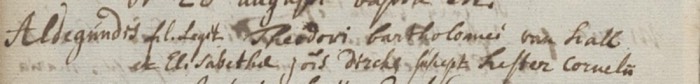 dt 28 augusti bapta est
Aldegundis fil. legit. Theodori bartholomei van hall
et Elisabethæ joïs Dircks suscept. Hester Cornelii